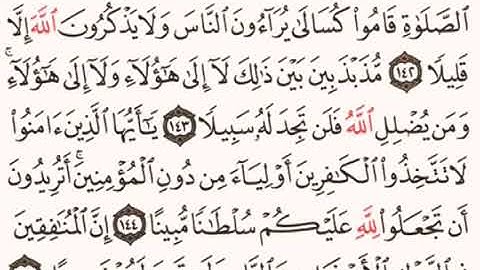 ٱلصَّلَوٰةِ قَامُوا۟ كُسَالَىٰ يُرَآءُونَ ٱلنَّاسَ وَلَا يَذْكُرُونَ ٱللَّهَ إِلَّا
قَلِيلًا ١٤٢ مُّذَبْذَبِينَ بَيْنَ ذَٰلِكَ لَآ إِلَىٰ هَٰٓؤُلَآءِ وَلَآ إِلَىٰ هَٰٓؤُلَآءِ ۚ
وَمَن يُضْلِلِ ٱللَّهُ فَلَن تَجِدَ لَهُۥ سَبِيلًا ١٤٣ يَٰٓأَيُّهَا ٱلَّذِينَ ءَامَنُوا۟
لَا تَتَّخِذُوا۟ ٱلْكَٰفِرِينَ أَوْلِيَآءَ مِن دُونِ ٱلْمُؤْمِنِينَ ۚ أَتُرِيدُونَ
أَن تَجْعَلُوا۟ لِلَّهِ عَلَيْكُمْ سُلْطَٰنًا مُّبِينًا ١٤٤ إِنَّ ٱلْمُنَٰفِقِينَ